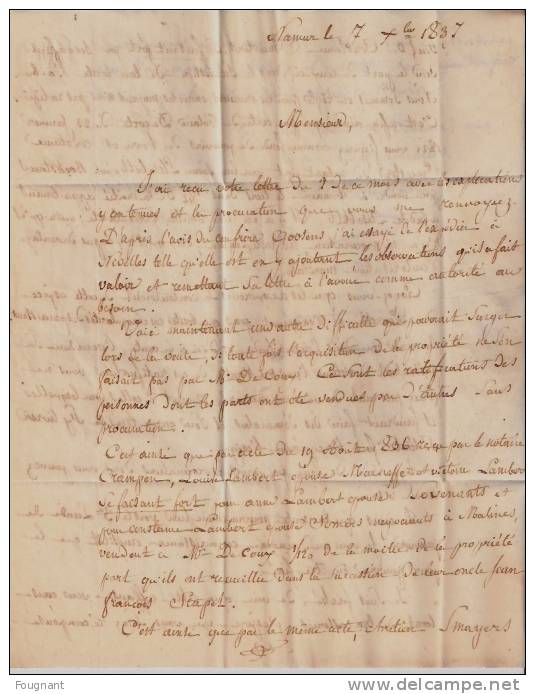 Namur le 7 xbre 1837
Monsieur,
J'ai reçu votre lettre du 1 de ce mois avec les explications
y contenues et la procuration que vous me renvoyez.
D'après l'avis du confrère Goosens j'ai essayé de l'expédier à
Nivelles telle qu'elle est en y ajoutant les observations qu'il a fait
valoir et remettant sa lettre à l'avoué comme autorité au
besoin.
Voici maintenant une autre difficulté qui pourrait surgir
lors de la vente, si toute fois l'acquisition de la propriété ne s'en
faisait pas par Mr De Coux. Ce sont les ratifications des
personnes dont les parts ont été vendues par d'autres sans
procuration.
C'est ainsi que par acte du 19 Août 1836 reçu par le notaire
Crampen, Louise Lambert épouse et victoire Lambert
se faisant fort pour anne Lambert épouse et
pour constance Lambert épouse négociants à Malines,
vendent à Mr De Coux 1/20 de la moitié de la propriété
part qu'ils ont recueillie dans la succession de leur oncle Jean
françois Stapel.
C'est ainsi que par le même acte, chrétien Smayers
Fougnant
delcampe.net